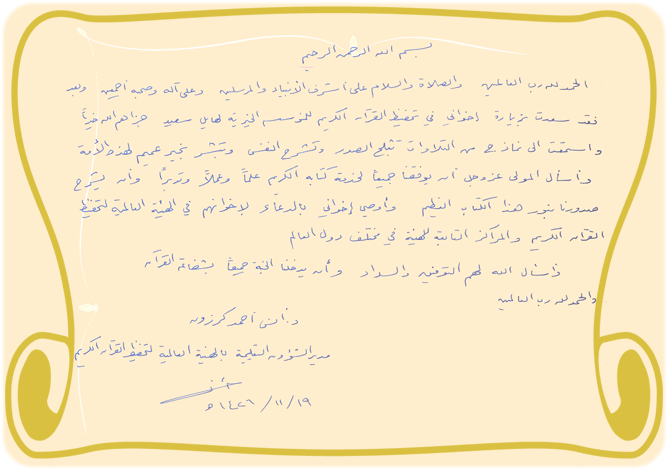 بسم الله الرحمن الرحيم
الحمد لله رب العالمين والصلاة والسلام على أشرف الأنبياء والمرسلين وعلى آله وصحبه أجمعين وبعد
فقد سعدت بزيارة إخواني في تحفيظ القرآن الكريم للمؤسسة الخيرية لهايل سعيد جزاهم الله خيراً
واستمعت الى نماذج من التلاوات تثلج الصدور وتشرح النفس وتبشر بخير عميم لهذه الأمة
وأسأل المولى عز وجل أن يوفقنا جميعاً لخدمة كتابه الكريم علماً وعملاً وتدبراً وأن يشرح
صدورنا بنور هذا الكتاب العظيم وأوصي إخواني بالدعاء لإخوانهم في الهيئة العالمية لتحفيظ
القرآن الكريم والمراكز التابعة للهيئة في مختلف دول العالم
فأسأل الله لهم التوفيق والسداد وأن يدخلنا الجنة جميعاً بشفاعة القرآن
والحمد لله رب العالمين
د. أنس أحمد كرزون
مدير الشؤون التعليمية بالهيئة العالمية لتحفيظ القرآن الكريم
١٤٢٦/١١/١٩ هـ